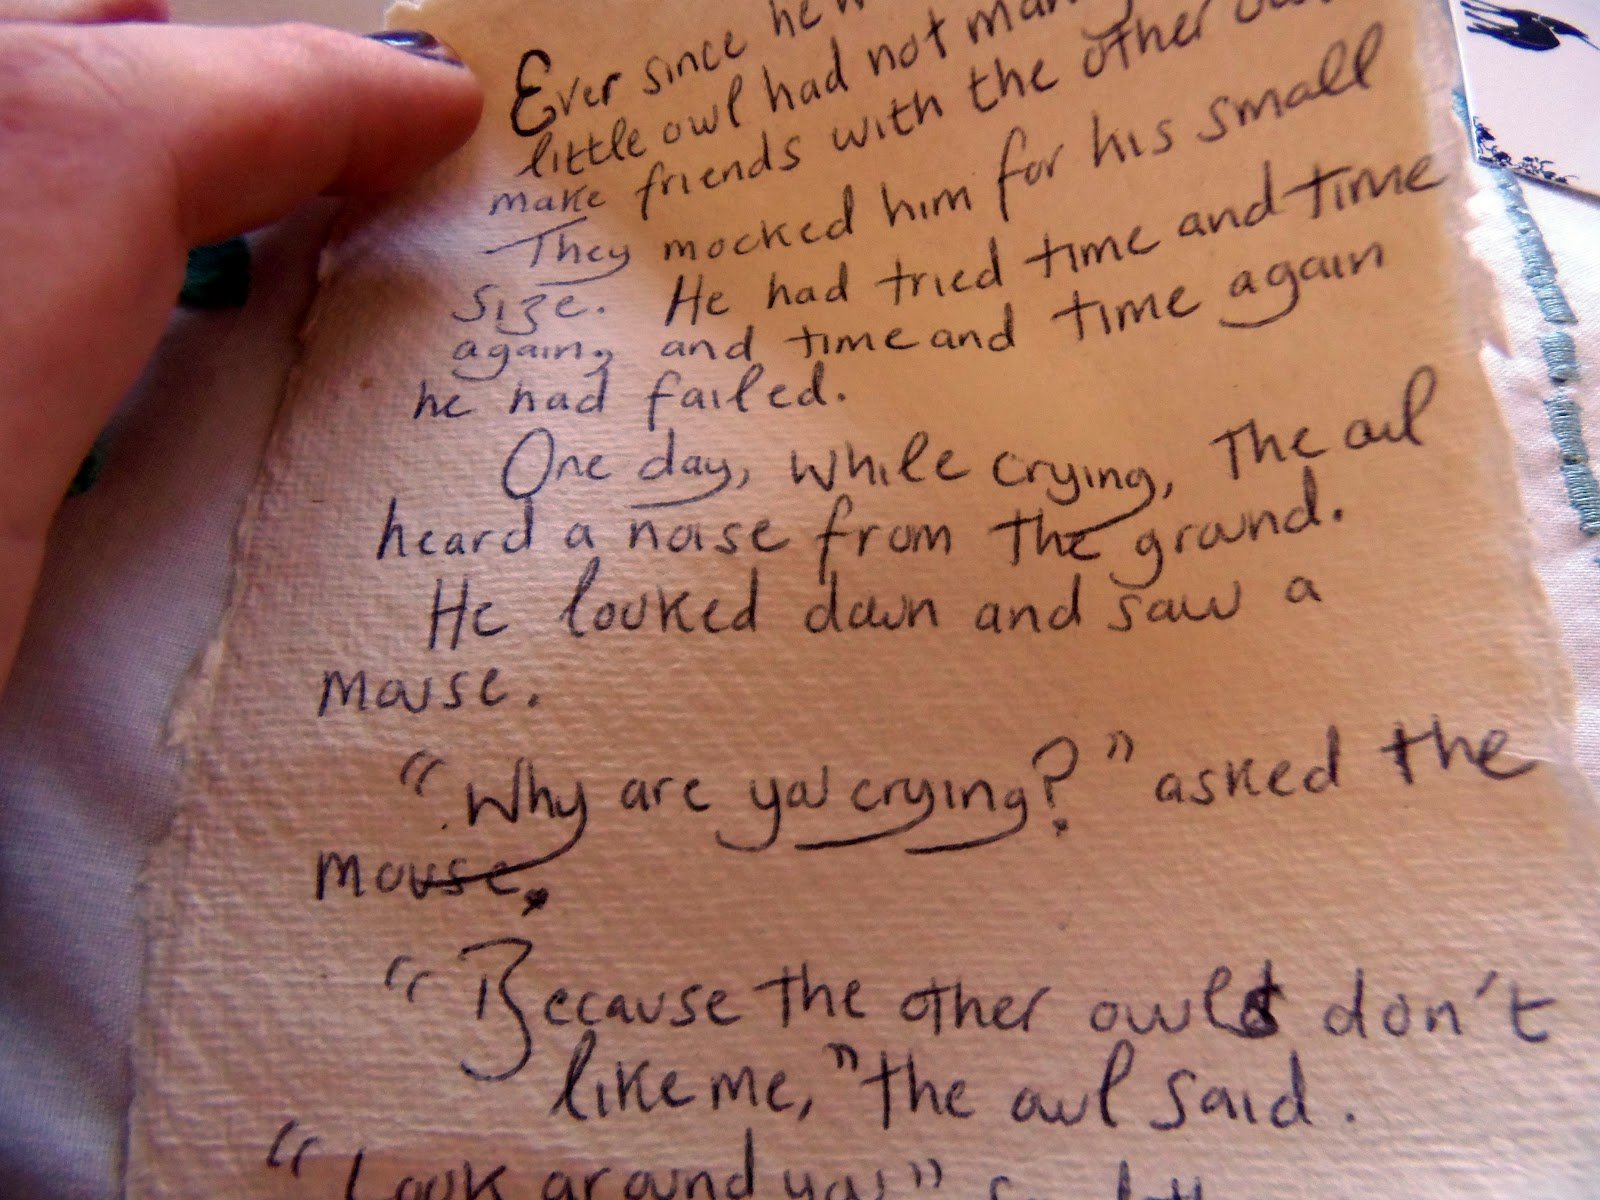 Ever since he
little owl had not
make friends with the other
They mocked him for his small
size. He had tried time and time
again, and time and time again
he had failed.
One day, while crying, the owl
heard a noise from the ground.
He looked down and saw a
mouse.
"Why are you crying?" asked the
mouse.
"Because the other owls don't
like me," the owl said.
"Look around you"